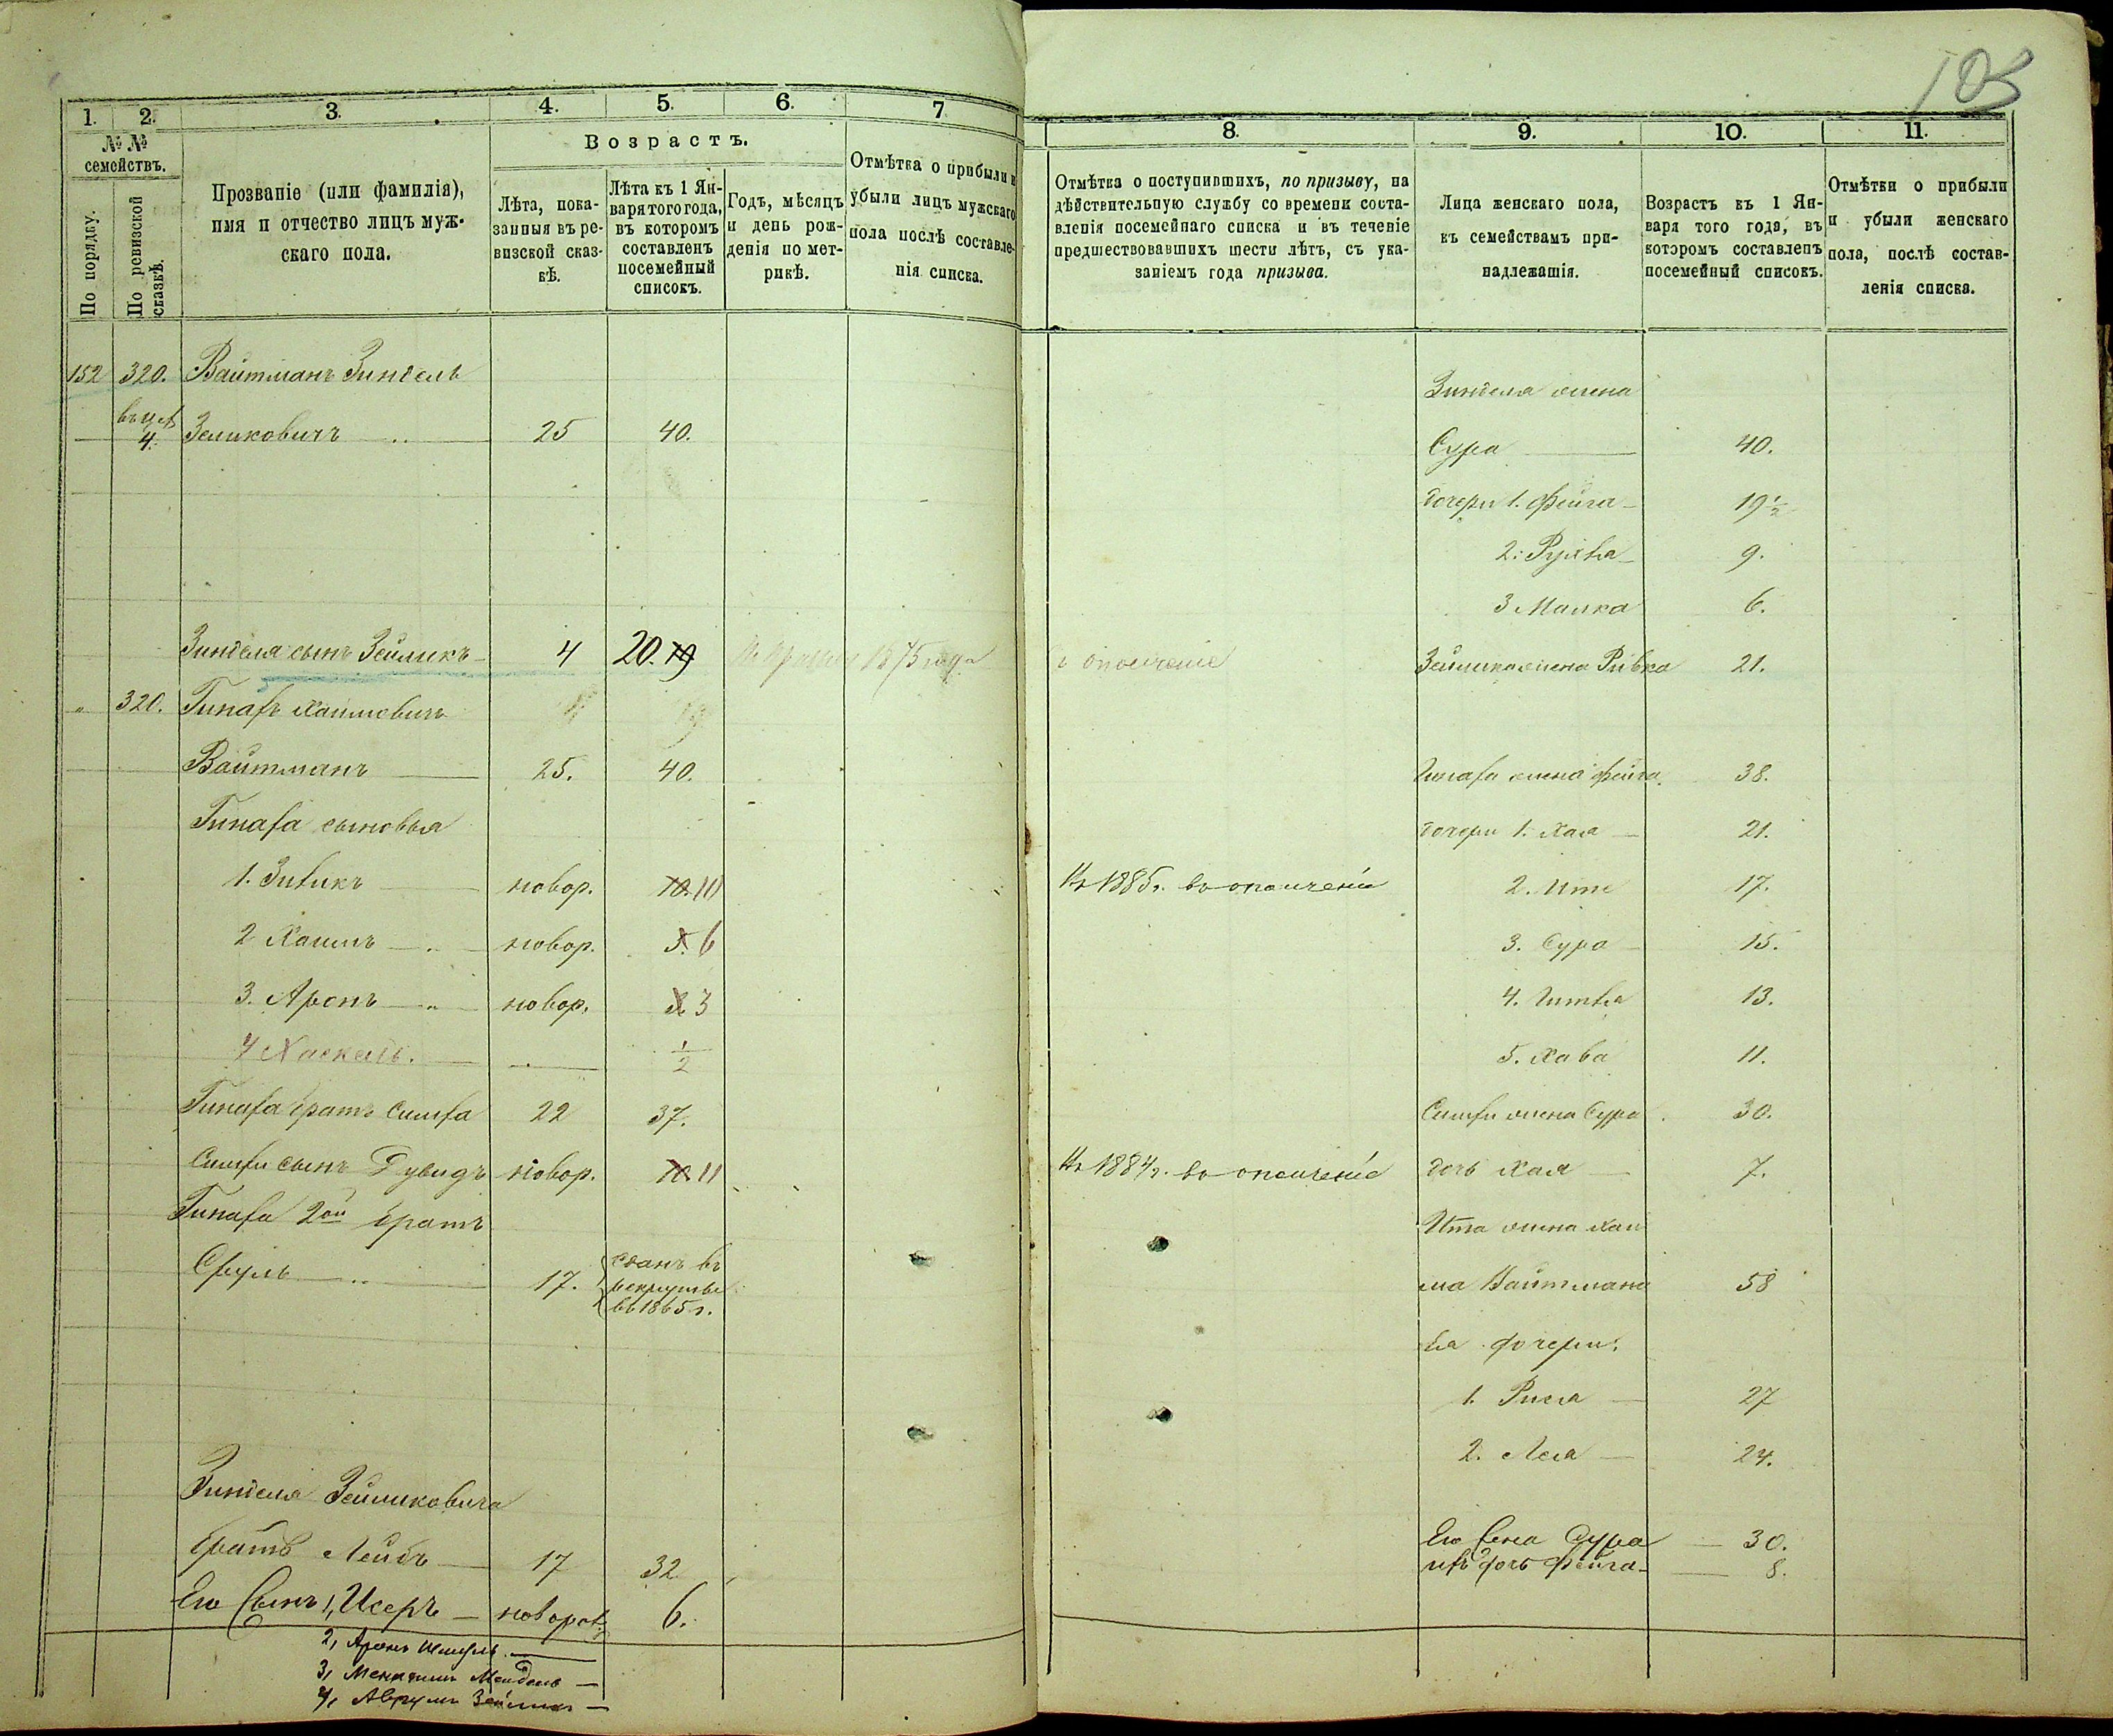 105
1. 2. 3. 4. 5. 6. 7
№ №
семействъ.
По порядку.
По ревизской
сказкѣ.
Прозваніе (или фамилія),
имя и отчество лицъ муж-
скаго пола.
Возрастъ.
Лѣта, пока-
занныя въ ре-
визской сказ-
кѣ.
Лѣта къ 1 Ян-
варя того года,
въ которомъ
составленъ
посемейный
списокъ.
Годъ, мѣсяцъ
и день рож-
денія по мет-
рикѣ.
Отмѣтка о прибыли и
убыли лицъ мужскаго
пола послѣ составле-
нія списка.
8. 9. 10. 11.
Отмѣтка о поступившихъ, по призыву, на
дѣйствительную службу со времени соста-
вленія посемейнаго списка и въ теченіе
предшествовавшихъ шести лѣтъ, съ ука-
заніемъ года призыва.
Лица женскаго пола,
къ семействамъ при-
надлежащія.
Возрастъ къ 1 Ян-
варя того года, въ
которомъ составленъ
посемейный списокъ.
Отмѣтки о прибыли
и убыли женскаго
пола, послѣ состав-
ленія списка.
152 320. Вайтманъ Зиндель
Зинделя жена
4. Зеликовичъ 25 40.
Сура 40.
дочери 1. Фейга 19 1/2
2. Рухля 9.
3 Малка 6.
Зинделя сынъ Зейликъ 4 20. 19 1875 года ополченіе Зейлика жена Ривка 21.
" 320. Гинахъ Хаимовичъ
Вайтманъ 25. 40. жена Фейга 38.
сыновья дочери 1. Хая 21.
1. новор. 10. 11 1885 г. въ ополченіи 2. Ите 17.
2 Хаимъ новор. 5. 6 3. Сура 15.
3. Аронъ новор. 3 4. Гитля 13.
4 Хаскель. 1/2 5. Хава 11.
братъ 22 37. жена Сура 30.
сынъ Дувидъ новор. 10. 11 1884 г. въ ополченіе дочь Хая 7.
2ой братъ Ита жена Хаи-
Сруль 17. сданъ въ
рекруты
въ 1865 г.
ма Вайтмана 58
Ея дочери:
1. Рися 27
2. Лея 24.
Зинделя Зейликовича
братъ Лейбъ 17 32
Его жена Сура 30.
ихъ дочь Фейга 8.
Его Сынъ 1, Исеръ новорожд. 6.
2, Аронъ Шмуль
3, Менахимъ Мендель
4, Аврумъ Зейликъ